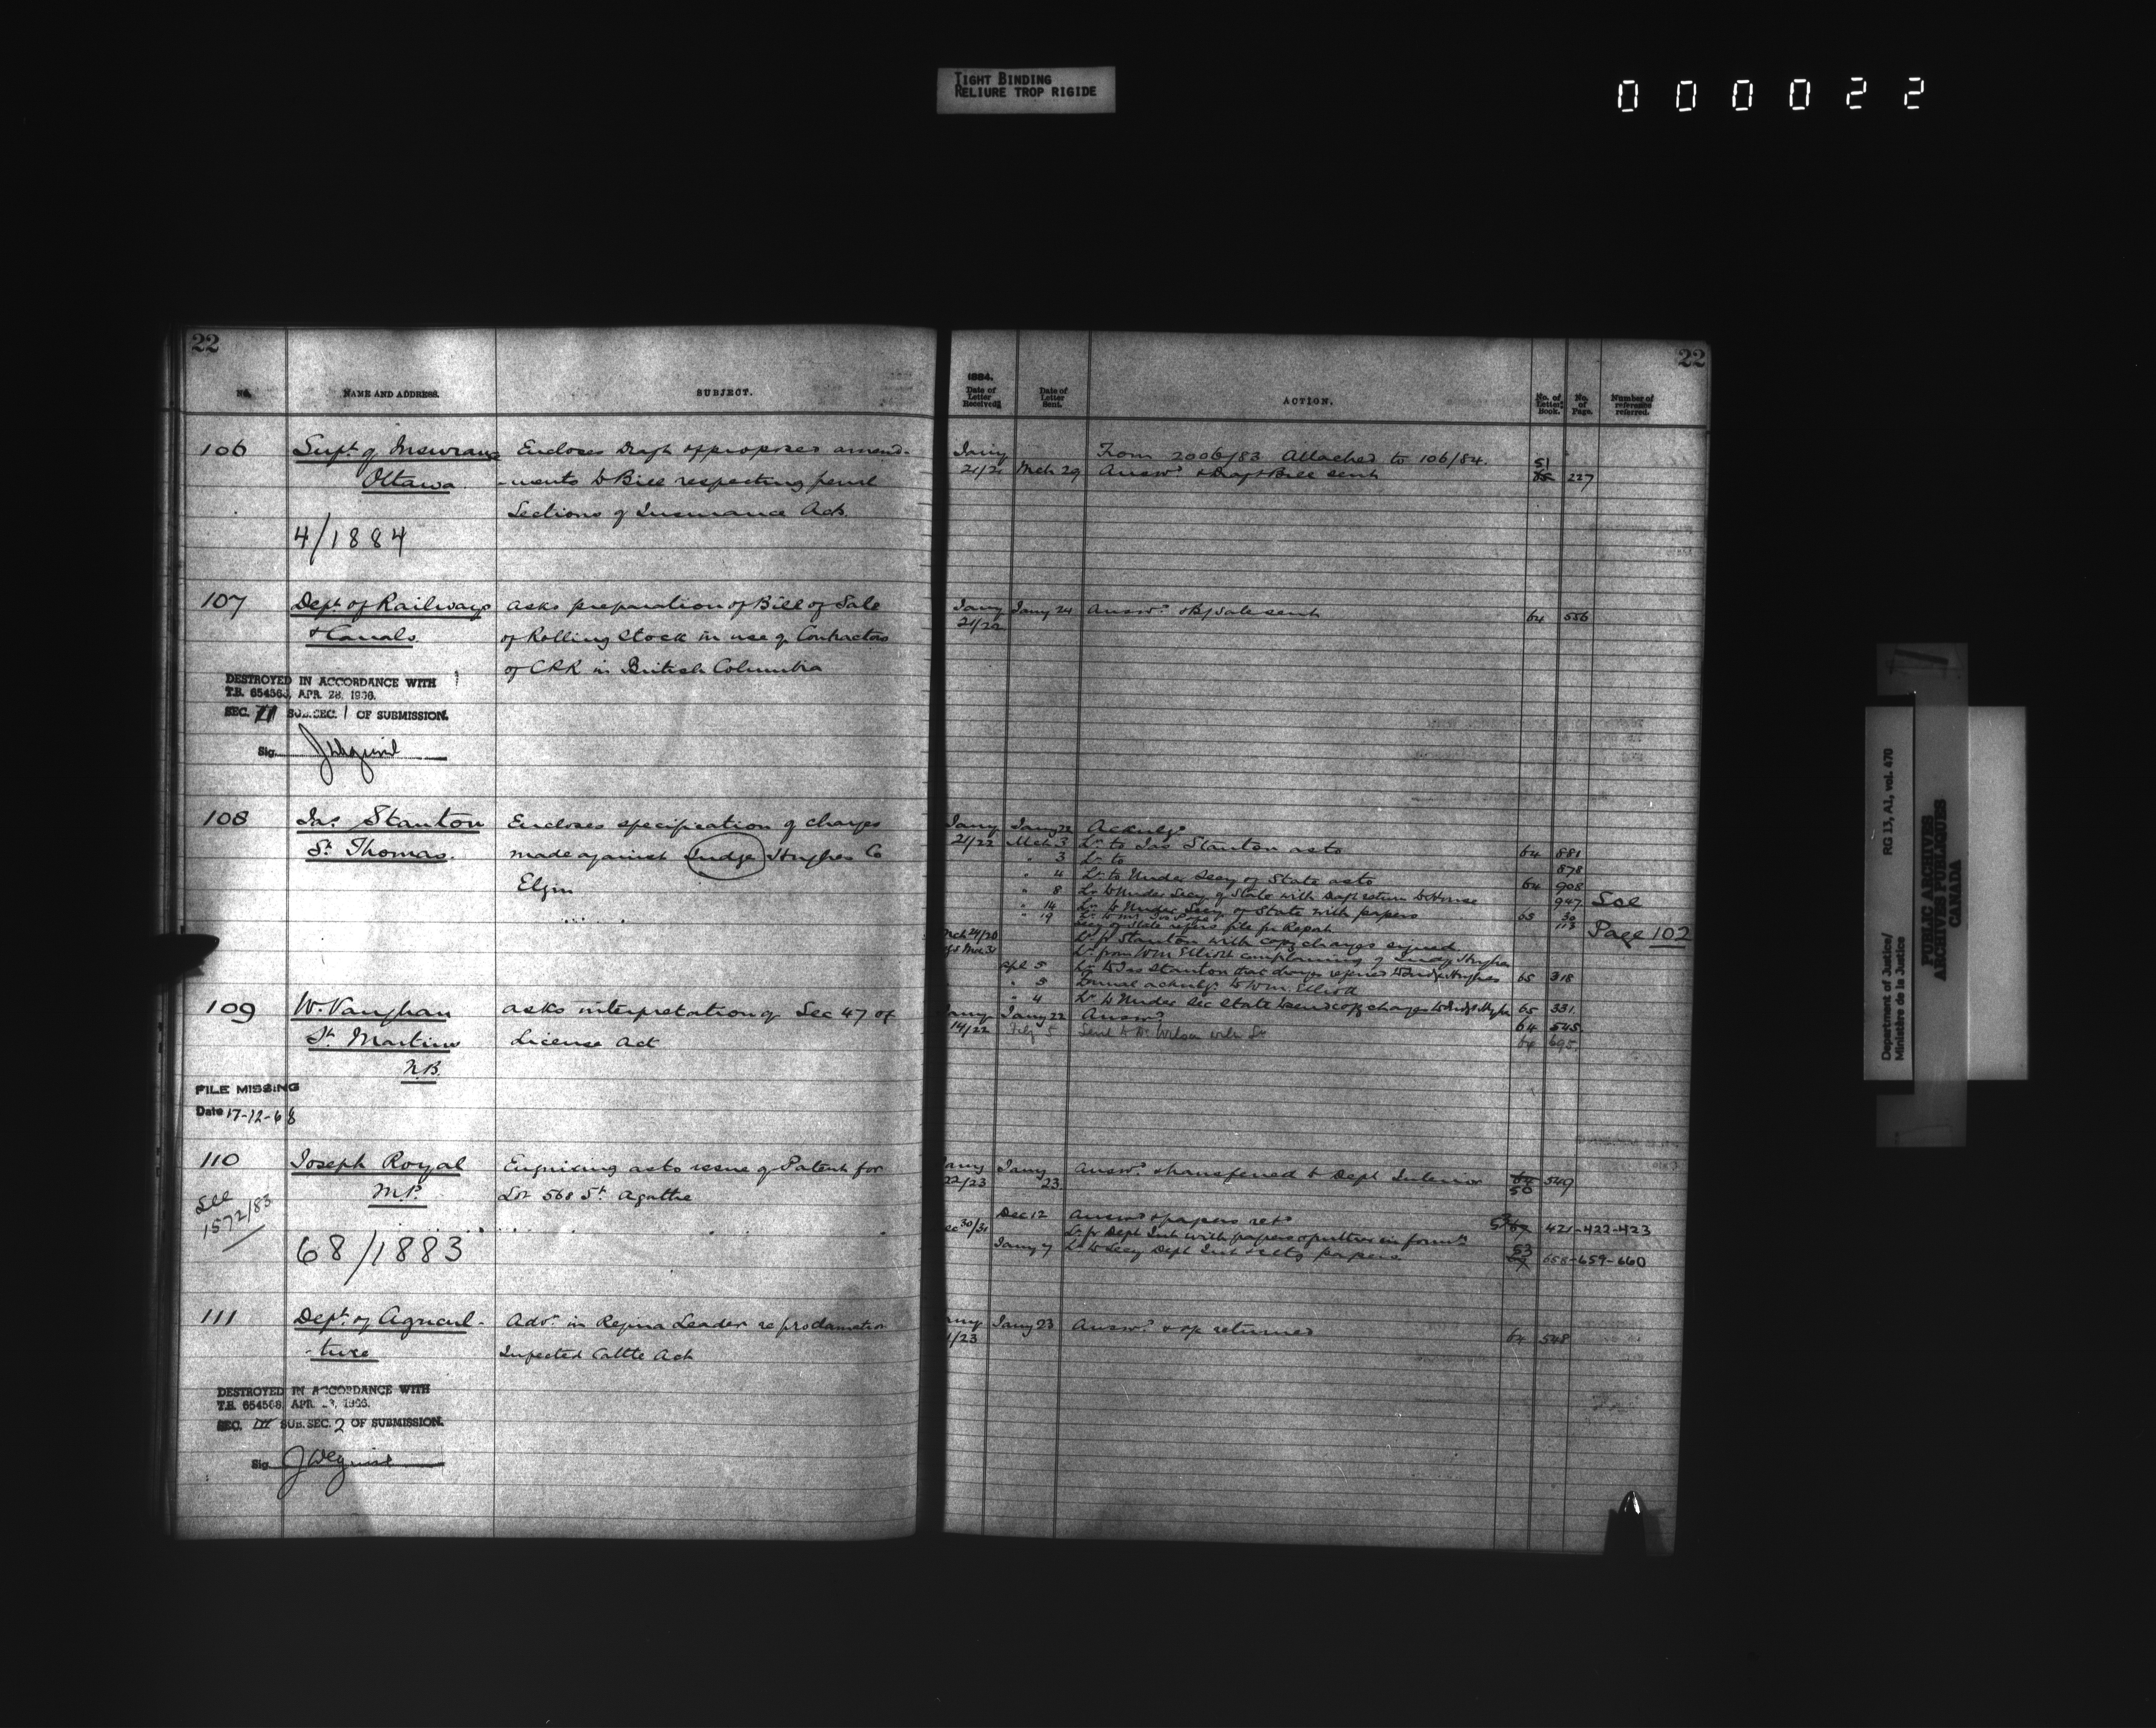 TIGHT BINDING
RELIURE TROP RIGIDE
000022
22
No.
NAME AND ADDRESS.
SUBJECT.
106
Supt of Insurance
Ottawa
4/1884
Encloses Draft of proposed amend-
-ments to Bill respecting penal
Sections of Insurance Act.
107
Dept of Railways
& Canals.
asks preparation of Bill of Sale
of Rolling Stock in use of Contractors
of CPR in British Columbia
DESTROYED IN ACCORDANCE WITH
T.B. 654563, APR. 28, 1966.
SEC. II SUB.SEC. 1 OF SUBMISSION.
Sig.
108
Jas Stanton
St Thomas.
Encloses specification of charges
made against Judge Hughes Co
Elgin
109
W. Vaughan
St Martins
N.B.
asks interpretation of Sec 47 of
License Act
FILE MISSING
Date 17-12-68
110
Joseph Royal
M.P.
See
1572/83
68/1883
Enquiring as to issue of Patent for
Lot 568 St Agathe
111
Dept of Agricul-
-ture
Advt in Regina Leader re proclamation
Infected Cattle Act
DESTROYED IN ACCORDANCE WITH
T.B. 654563, APR. 1966.
SEC. III SUB.SEC. 2 OF SUBMISSION.
Sig.
22
1884.
Date of Letter Received.
Date of Letter Sent.
ACTION.
No. of Letter Book.
No. of Page.
Number of reference referred.
From 2006/83 Attached to 106/84.
Jany 21/21 Mch 29 Answd & Draft Bill sent 51 227
Jany 21/22 Jany 24 Answd & B/Sale sent 64 556
Jany 21/22 Jany 22 Acknlgd
Mch 3 Lr to Jas Stanton as to 64 881
" 3 Lr to 878
" 4 Lr to Under Secy of State as to 64 908
" 8 Lr to Under Secy of State with Draft return to House 947 See
" 14 Lr to Under Secy of State with papers 65 30
" 19 113 Page 102
Secy of State refers file for Report
Lr fr Stanton with copy charges signed
Lr from Wm Elliott complaining of Judge Hughes
Apl 5 Lr to Jas Stanton that charges referred to Judge Hughes 65 318
" 5 Formal acknlgt to Wm. Elliott
" 4 Lr to Under Sec State to send copy charges to Judge Hughes 65 331
Jany 14/22 Jany 22 Answd 64 545
Feby 5 Send to Mr Wilson with Lr 64 695
Jany 22/23 Jany 23. Answd & transferred to Dept Interior 50 549
Dec 12 Answd & papers retd 421-422-423
Dec 30/31 Lr fr Dept Int with papers & further informtn
Jany 7 Lr to Secy Dept Int retg papers 53 658-659-660
Jany 23 Answd & a/c returned 64 548
Department of Justice/
Ministère de la Justice
RG 13, A1, vol. 470
PUBLIC ARCHIVES
ARCHIVES PUBLIQUES
CANADA